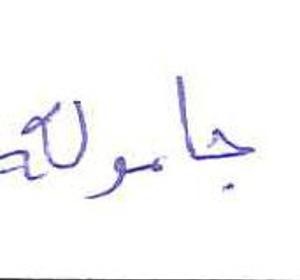 جامولة